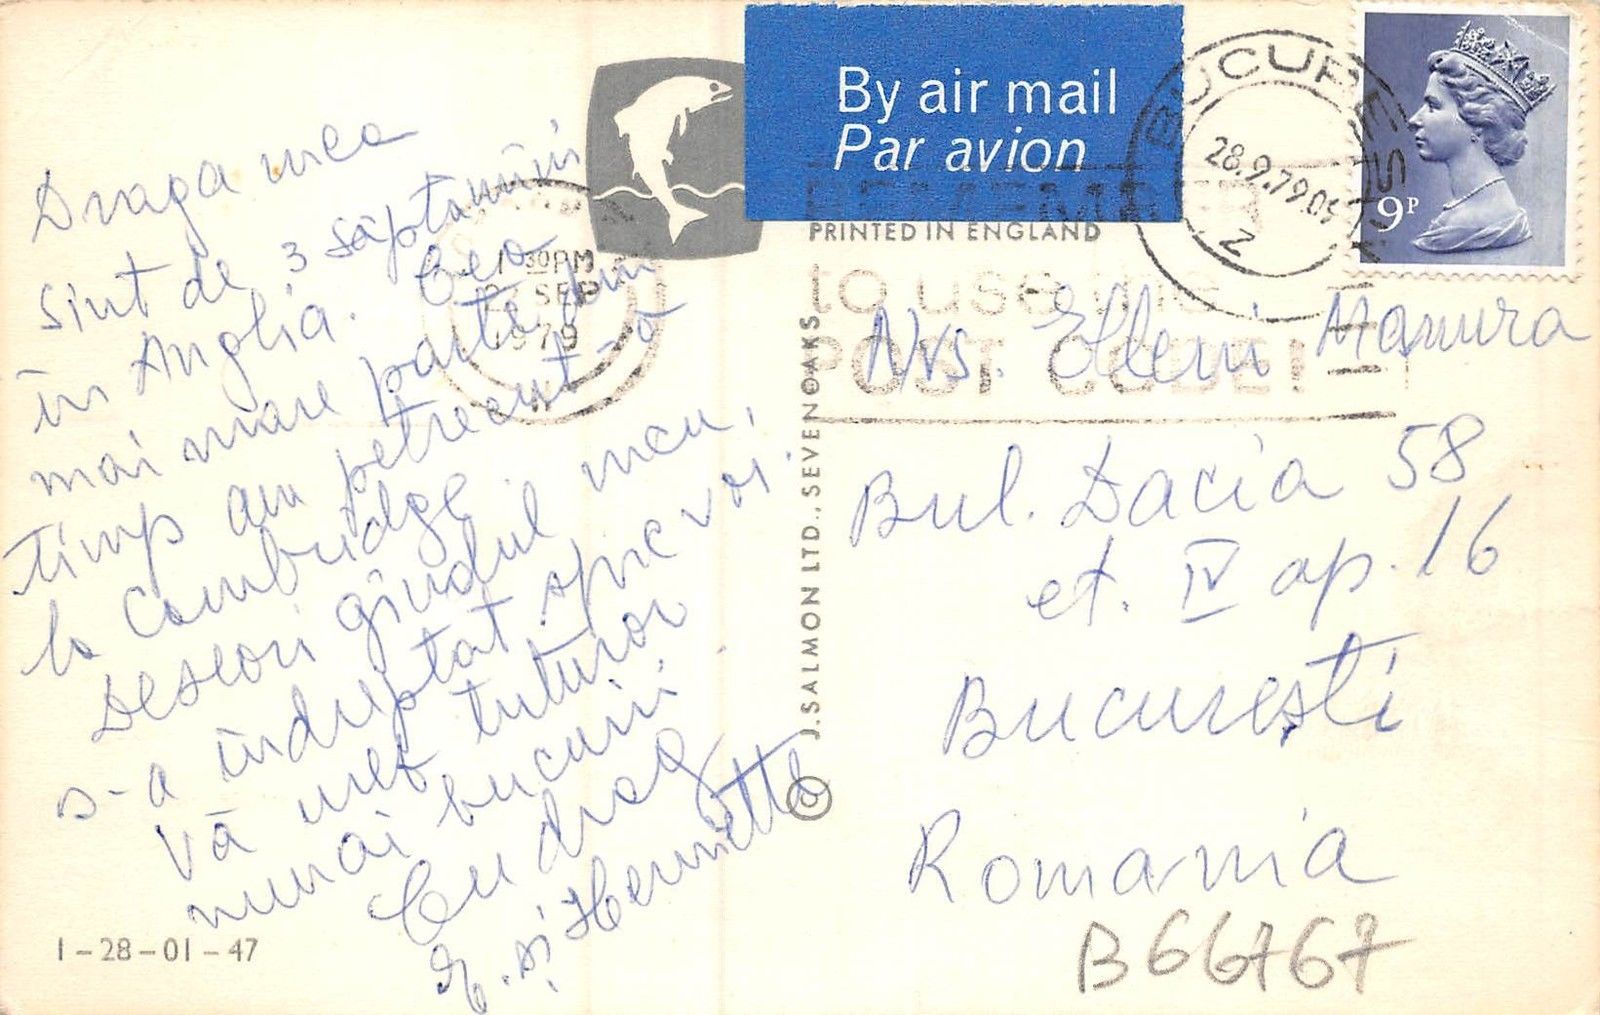 Draga mea
sînt de 3 săptămîni
în Anglia. Cea
mai mare parte din
timp am petrecut-o
la Cambridge
Deseori gîndul meu,
s-a îndreptat spre voi.
Vă urez tuturor
numai bucurii.
Cu drag
E. și Henriette
1-28-01-47
1 30PM
SEP
1979
By air mail
Par avion
PRINTED IN ENGLAND
REMEMBER
to use the
POST CODE!
J. SALMON LTD., SEVENOAKS
©
BUCUREȘTI
28.9.79.09
Z
9P
Mrs. Elleni Mamura
Bul. Dacia 58
et. IV ap. 16
București
Romania
B66767